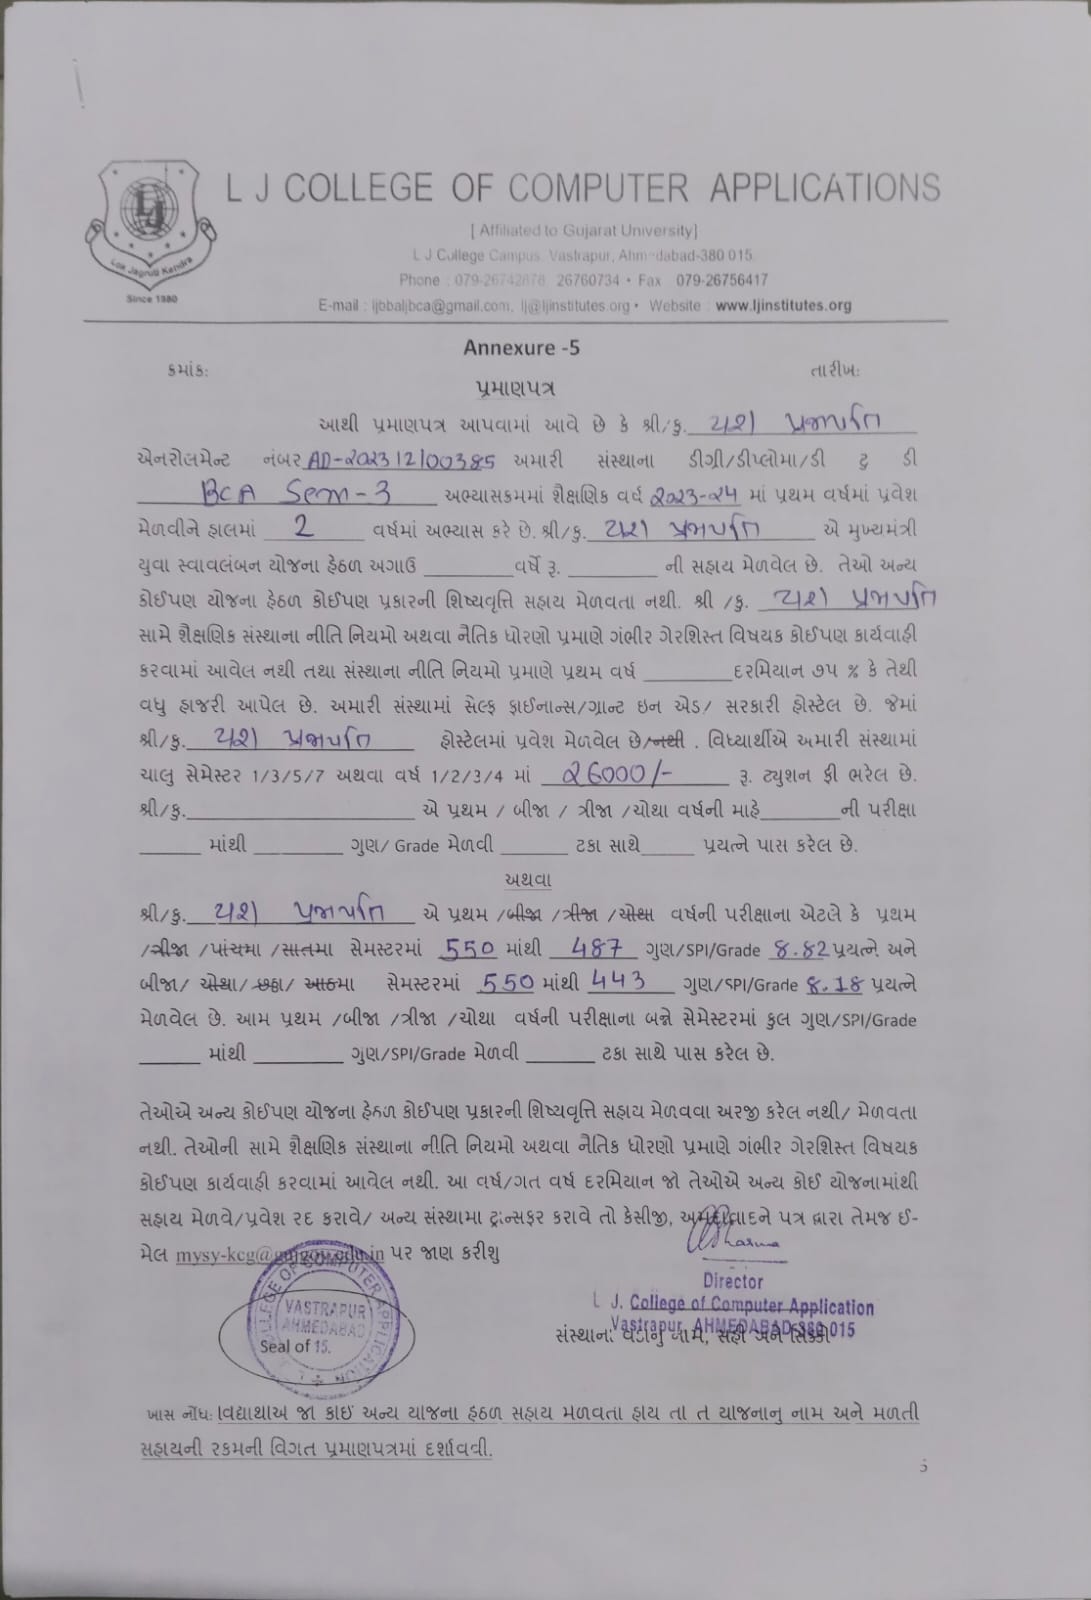 L J COLLEGE OF COMPUTER APPLICATIONS
[ Affiliated to Gujarat University]
L J College Campus, Vastrapur, Ahmedabad-380 015.
Phone : 079-26742878, 26760734 • Fax 079-26756417
E-mail : ljbbaljbca@gmail.com, lj@ljinstitutes.org • Website : www.ljinstitutes.org
LJ
Lok Jagruti Kendra
Since 1980
Annexure -5
ક્રમાંક: તારીખ:
પ્રમાણપત્ર
આથી પ્રમાણપત્ર આપવામાં આવે છે કે શ્રી/કુ. યશ પ્રજાપતિ
એનરોલમેન્ટ નંબર AD-202312100385 અમારી સંસ્થાના ડીગ્રી/ડીપ્લોમા/ડી ટુ ડી
BCA Sem-3 અભ્યાસક્રમમાં શૈક્ષણિક વર્ષ 2023-24 માં પ્રથમ વર્ષમાં પ્રવેશ
મેળવીને હાલમાં 2 વર્ષમાં અભ્યાસ કરે છે. શ્રી/કુ. યશ પ્રજાપતિ એ મુખ્યમંત્રી
યુવા સ્વાવલંબન યોજના હેઠળ અગાઉ ________ વર્ષે રૂ. ________ ની સહાય મેળવેલ છે. તેઓ અન્ય
કોઈપણ યોજના હેઠળ કોઈપણ પ્રકારની શિષ્યવૃત્તિ સહાય મેળવતા નથી. શ્રી /કુ. યશ પ્રજાપતિ
સામે શૈક્ષણિક સંસ્થાના નીતિ નિયમો અથવા નૈતિક ધોરણો પ્રમાણે ગંભીર ગેરશિસ્ત વિષયક કોઈપણ કાર્યવાહી
કરવામાં આવેલ નથી તથા સંસ્થાના નીતિ નિયમો પ્રમાણે પ્રથમ વર્ષ ________ દરમિયાન ૭૫ % કે તેથી
વધુ હાજરી આપેલ છે. અમારી સંસ્થામાં સેલ્ફ ફાઈનાન્સ/ગ્રાન્ટ ઇન એડ/ સરકારી હોસ્ટેલ છે. જેમાં
શ્રી/કુ. યશ પ્રજાપતિ હોસ્ટેલમાં પ્રવેશ મેળવેલ છે/નથી . વિધ્યાર્થીએ અમારી સંસ્થામાં
ચાલુ સેમેસ્ટર 1/3/5/7 અથવા વર્ષ 1/2/3/4 માં 26000/- રૂ. ટ્યુશન ફી ભરેલ છે.
શ્રી/કુ.____________________ એ પ્રથમ / બીજા / ત્રીજા /ચોથા વર્ષની માહે_______ની પરીક્ષા
______ માંથી ________ ગુણ/ Grade મેળવી ______ ટકા સાથે_____ પ્રયત્ને પાસ કરેલ છે.
અથવા
શ્રી/કુ. યશ પ્રજાપતિ એ પ્રથમ /બીજા /ત્રીજા /ચોથા વર્ષની પરીક્ષાના એટલે કે પ્રથમ
/ત્રીજા /પાંચમા /સાતમા સેમસ્ટરમાં 550 માંથી 487 ગુણ/SPI/Grade 8.82 પ્રયત્ને અને
બીજા/ ચોથા/ છઠ્ઠા/ આઠમા સેમસ્ટરમાં 550 માંથી 443 ગુણ/SPI/Grade 8.18 પ્રયત્ને
મેળવેલ છે. આમ પ્રથમ /બીજા /ત્રીજા /ચોથા વર્ષની પરીક્ષાના બન્ને સેમેસ્ટરમાં કુલ ગુણ/SPI/Grade
______ માંથી ________ ગુણ/SPI/Grade મેળવી ______ ટકા સાથે પાસ કરેલ છે.
તેઓએ અન્ય કોઈપણ યોજના હેઠળ કોઈપણ પ્રકારની શિષ્યવૃત્તિ સહાય મેળવવા અરજી કરેલ નથી/ મેળવતા
નથી. તેઓની સામે શૈક્ષણિક સંસ્થાના નીતિ નિયમો અથવા નૈતિક ધોરણો પ્રમાણે ગંભીર ગેરશિસ્ત વિષયક
કોઈપણ કાર્યવાહી કરવામાં આવેલ નથી. આ વર્ષ/ગત વર્ષ દરમિયાન જો તેઓએ અન્ય કોઈ યોજનામાંથી
સહાય મેળવે/પ્રવેશ રદ કરાવે/ અન્ય સંસ્થામા ટ્રાન્સફર કરાવે તો કેસીજી, અમદાવાદને પત્ર દ્વારા તેમજ ઈ-
મેલ mysy-kcg@gujgov.edu.in પર જાણ કરીશુ
Sharma
Director
L. J. College of Computer Application
Vastrapur, AHMEDABAD-380 015
સંસ્થાના વડાનું નામ, સહી અને સિક્કો
COLLEGE OF COMPUTER APPLICATION
VASTRAPUR
AHMEDABAD
15.
Seal of
ખાસ નોંધ: વિદ્યાથીએ જો કોઇ અન્ય યોજના હેઠળ સહાય મળવતા હોય તો તે યોજનાનુ નામ અને મળતી
સહાયની રકમની વિગત પ્રમાણપત્રમાં દર્શાવવી.